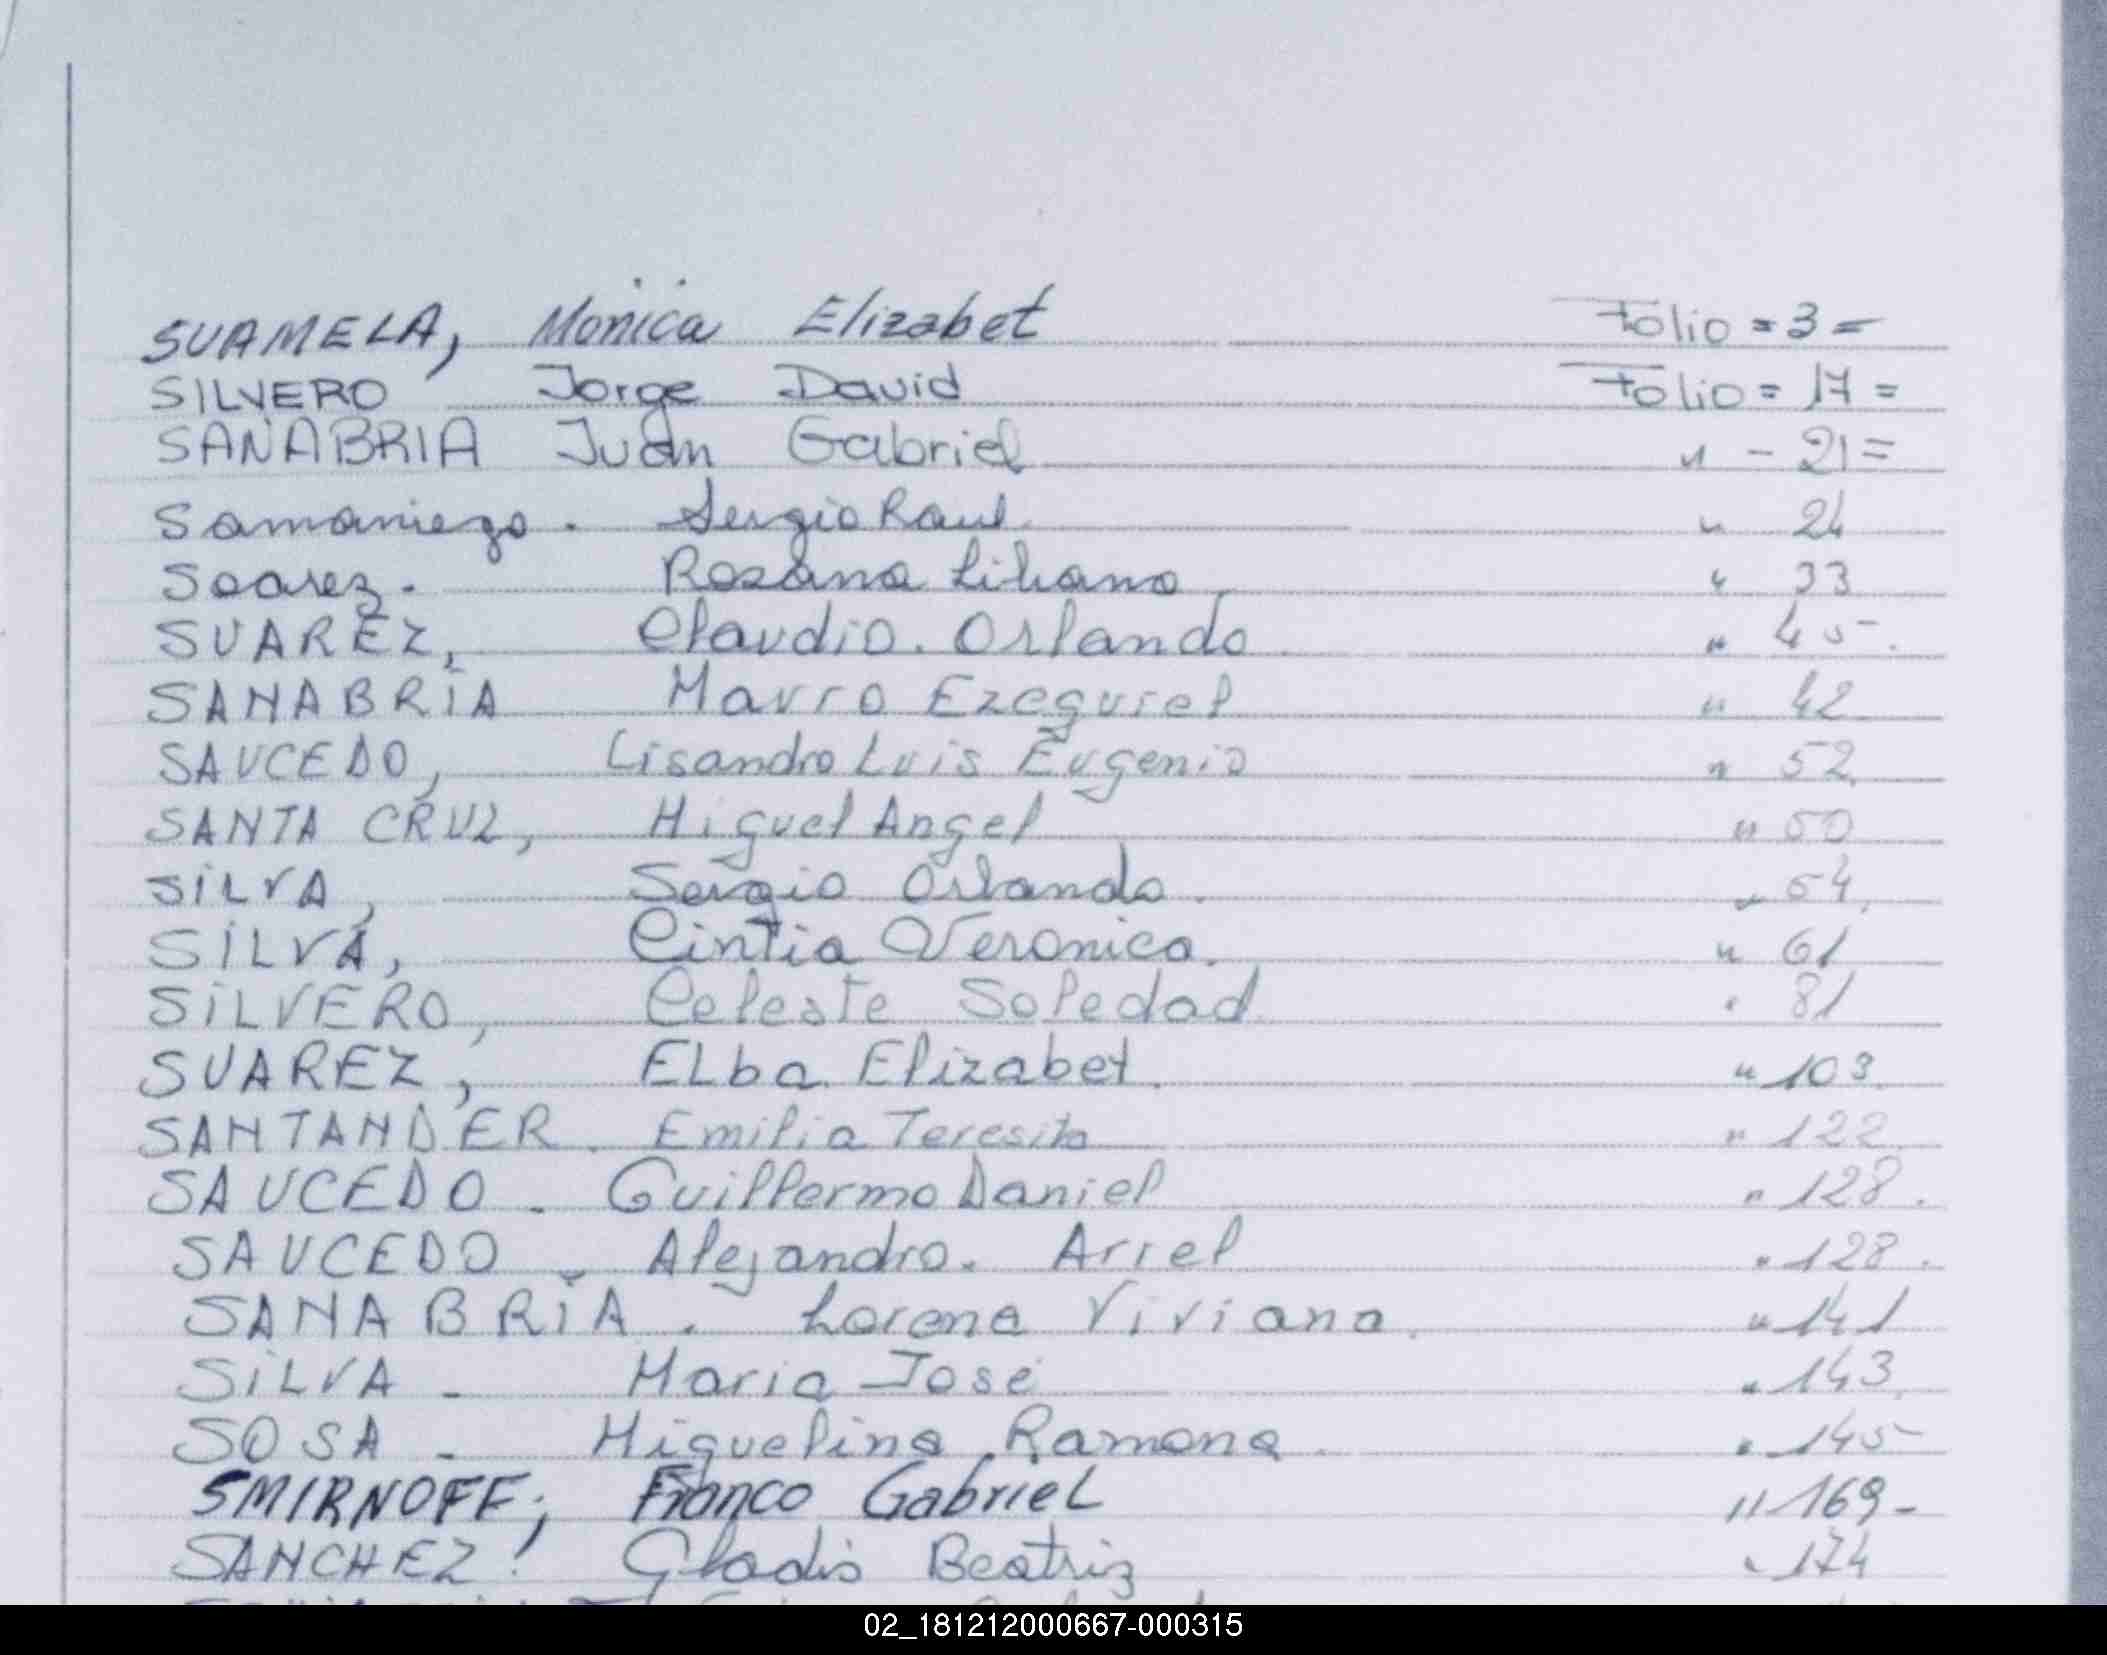 SUAMELA, Monica Elizabet Folio = 3 =
SILVERO Jorge David Folio = 17 =
SANABRIA Juan Gabriel " - 21 =
Samaniego. Sergio Raul " 24
Soarez. Rosana Liliana " 33
SUAREZ, Claudio. Orlando " 45.
SANABRIA Mauro Ezequiel " 42
SAUCEDO, Lisandro Luis Eugenio " 52
SANTA CRUZ, Miguel Angel " 50
SILVA, Sergio Orlando. " 54.
SILVA, Cintia Veronica. " 61
SILVERO, Celeste Soledad. " 81
SUAREZ, ELba Elizabet. " 103.
SANTANDER. Emilia Teresita " 122.
SAUCEDO - Guillermo Daniel " 128.
SAUCEDO - Alejandro. Ariel " 128.
SANABRIA. Lorena Viviana. " 141
SILVA - Maria José " 143.
SOSA - Miguelina Ramona. " 145
SMIRNOFF; Franco GabrieL " 169-
SANCHEZ! Gladis Beatriz " 174
02_181212000667-000315